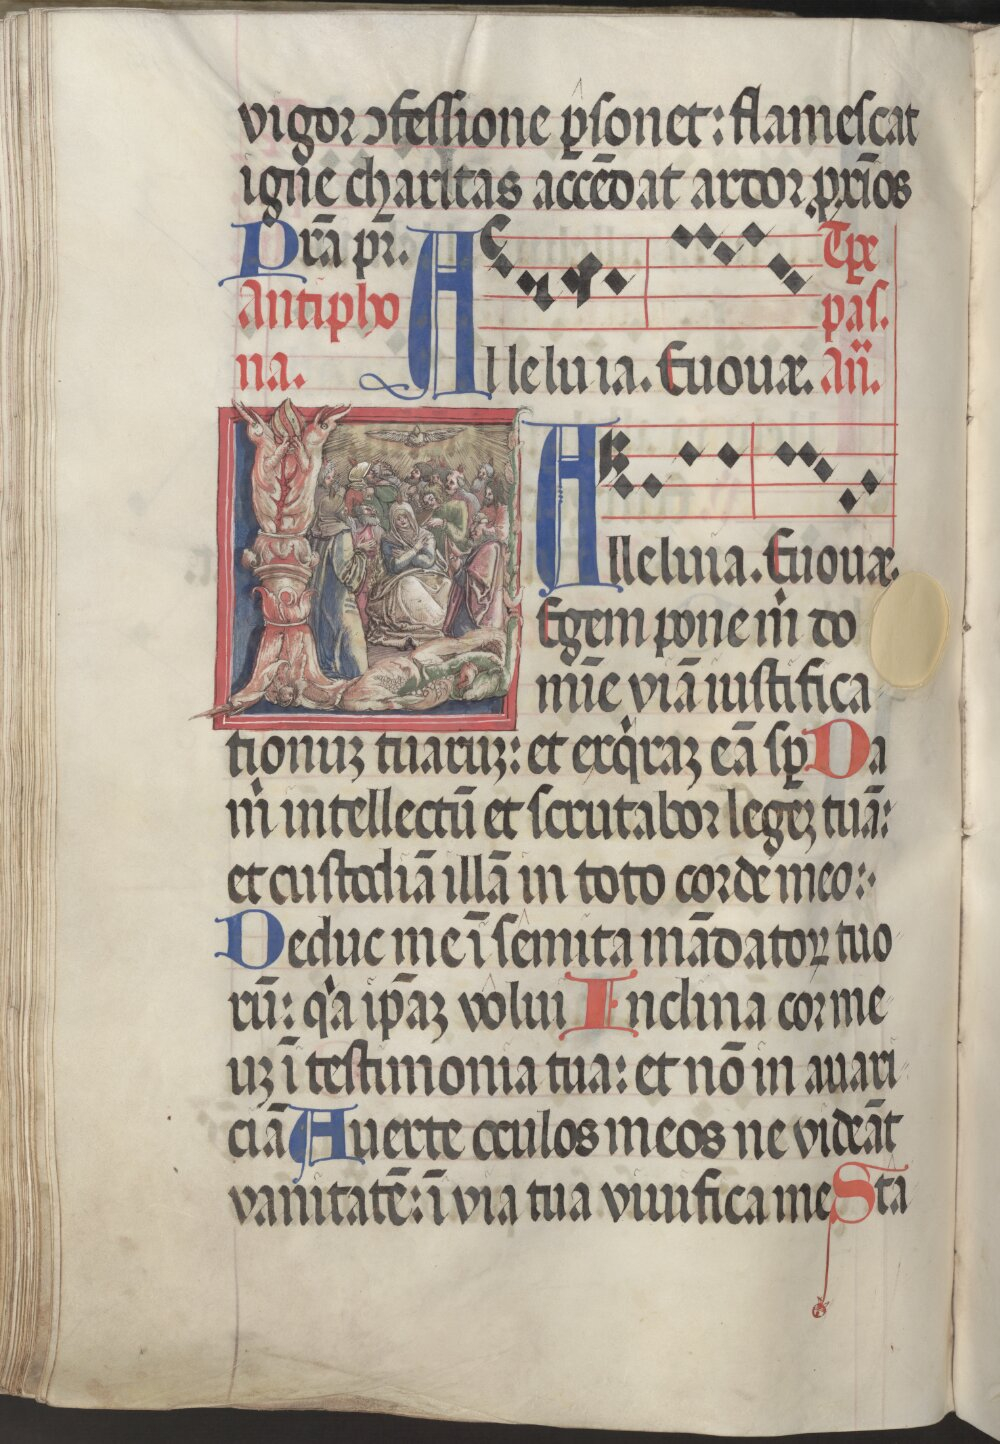 vigor ↄfessione ꝑsonet: flamescat
igne charitas accēdat ardor pxīos
Prā pr̄. Tp̄e
Antipho pas.
na. Alleluia. Euouæ. Añ.
Alleluia. Euouæ.
Legem pone m̄ do
mīe viā iustifica
tionuꝫ tuaruꝫ: et exq̇raꝫ eā sꝑ Da
m̄ intellectū et scrutabor legeꝫ tuā:
et custodiā illā in toto corde meo:
Deduc me ī semita mādatoꝝ tuo
rū: qa ipāꝫ volui Inclina cor me
uꝫ ī testimonia tua: et nō in auari
ciā Auerte oculos meos ne videāt
vanitatē: ī via tua viuifica me Sta